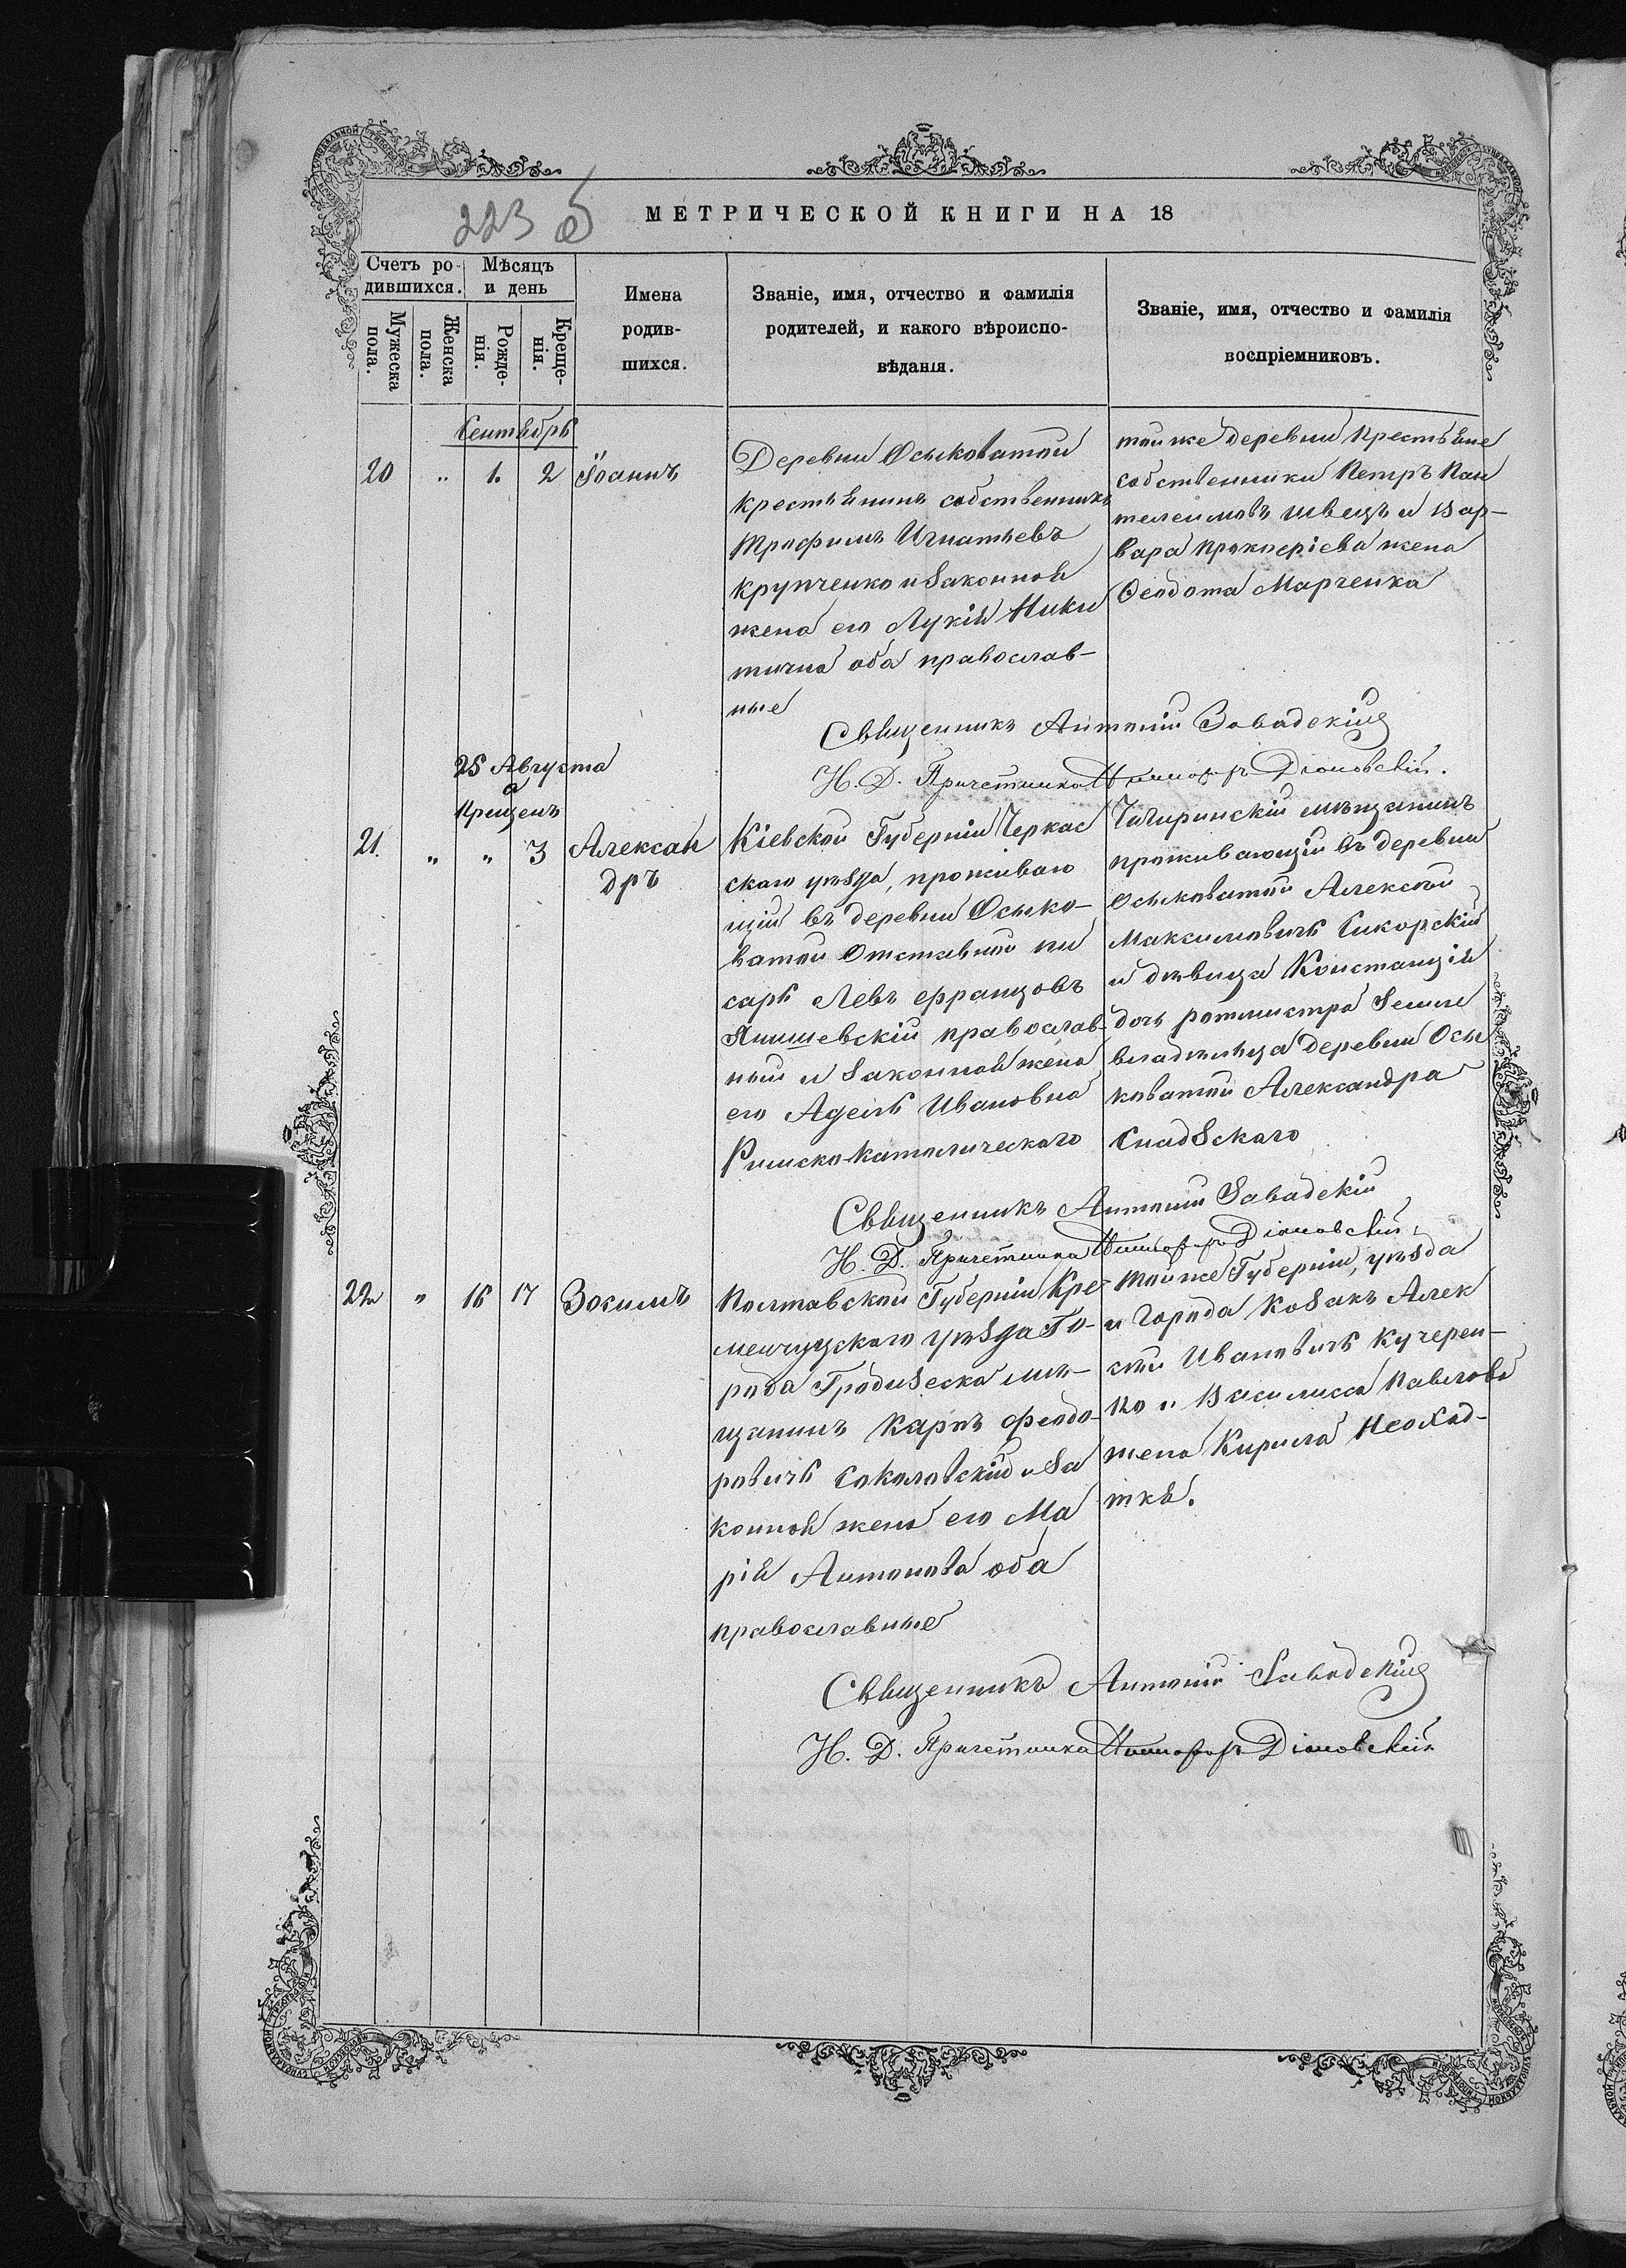 223 об
МЕТРИЧЕСКОЙ КНИГИ НА 18
Счетъ ро-
дившихся.
Мѣсяцъ
и день
Мужеска
пола.
Женска
пола.
Рожде-
нія.
Креще-
нія.
Имена
родив-
шихся.
Званіе, имя, отчество и фамилія
родителей, и какого вѣроиспо-
вѣданія.
Званіе, имя, отчество и фамилія
воспріемниковъ.
Сентябрь
20 " 1. 2 Іоаннъ
Деревни Осыковатой
крестьянинъ собственникъ
Трофимъ Игнатьевъ
Крупченко и законная
жена его Лукія Ники
тична оба православ-
ные
тойже деревни крестьяне
собственники Петръ Пан
телеимовъ Швецъ и Вар-
вара Прокопіева жена
Феодота Марченка
Священникъ Антоній Завадскій
И. Д. Причетника Никифоръ Діаковскій.
25 Августа
а
Крещенъ
21. " " 3 Александръ
Кіевской Губерніи Черкас
скаго уѣзда, проживаю
щій въ деревни Осыко-
ватой Отставной пи
сарь Левъ Францовъ
Янишевскій православ-
ный и законная жена
его Адель Ивановна
Римско-католическаго
Чигиринскій мѣщанинъ
проживающій въ деревни
Осыковатой Алексѣй
Максимовичъ Сикорскій
и дѣвица Констанція
дочь ротмистра Земле
владѣльца деревни Осы
коватой Александра
Снадзскаго
Священникъ Антоній Завадскій
И. Д. Причетника Никифоръ Діаковскій.
22 " 16 17 Зосимъ
Полтавской Губерніи Кре-
менчуцскаго уѣзда Го-
рода Градизска мѣ-
щанинъ Карпъ Феодо-
ровичъ Соколовскій и за
конная жена его Ма
рія Антонова оба
православные
Тойже Губерніи, уѣзда
и Города Козакъ Алек
сѣй Ивановичъ Кучерен-
ко и Василиса Павлова
жена Кирила Неохад-
тка.
Священникъ Антоній Завадскій
И. Д. Причетника Никифоръ Діаковскій